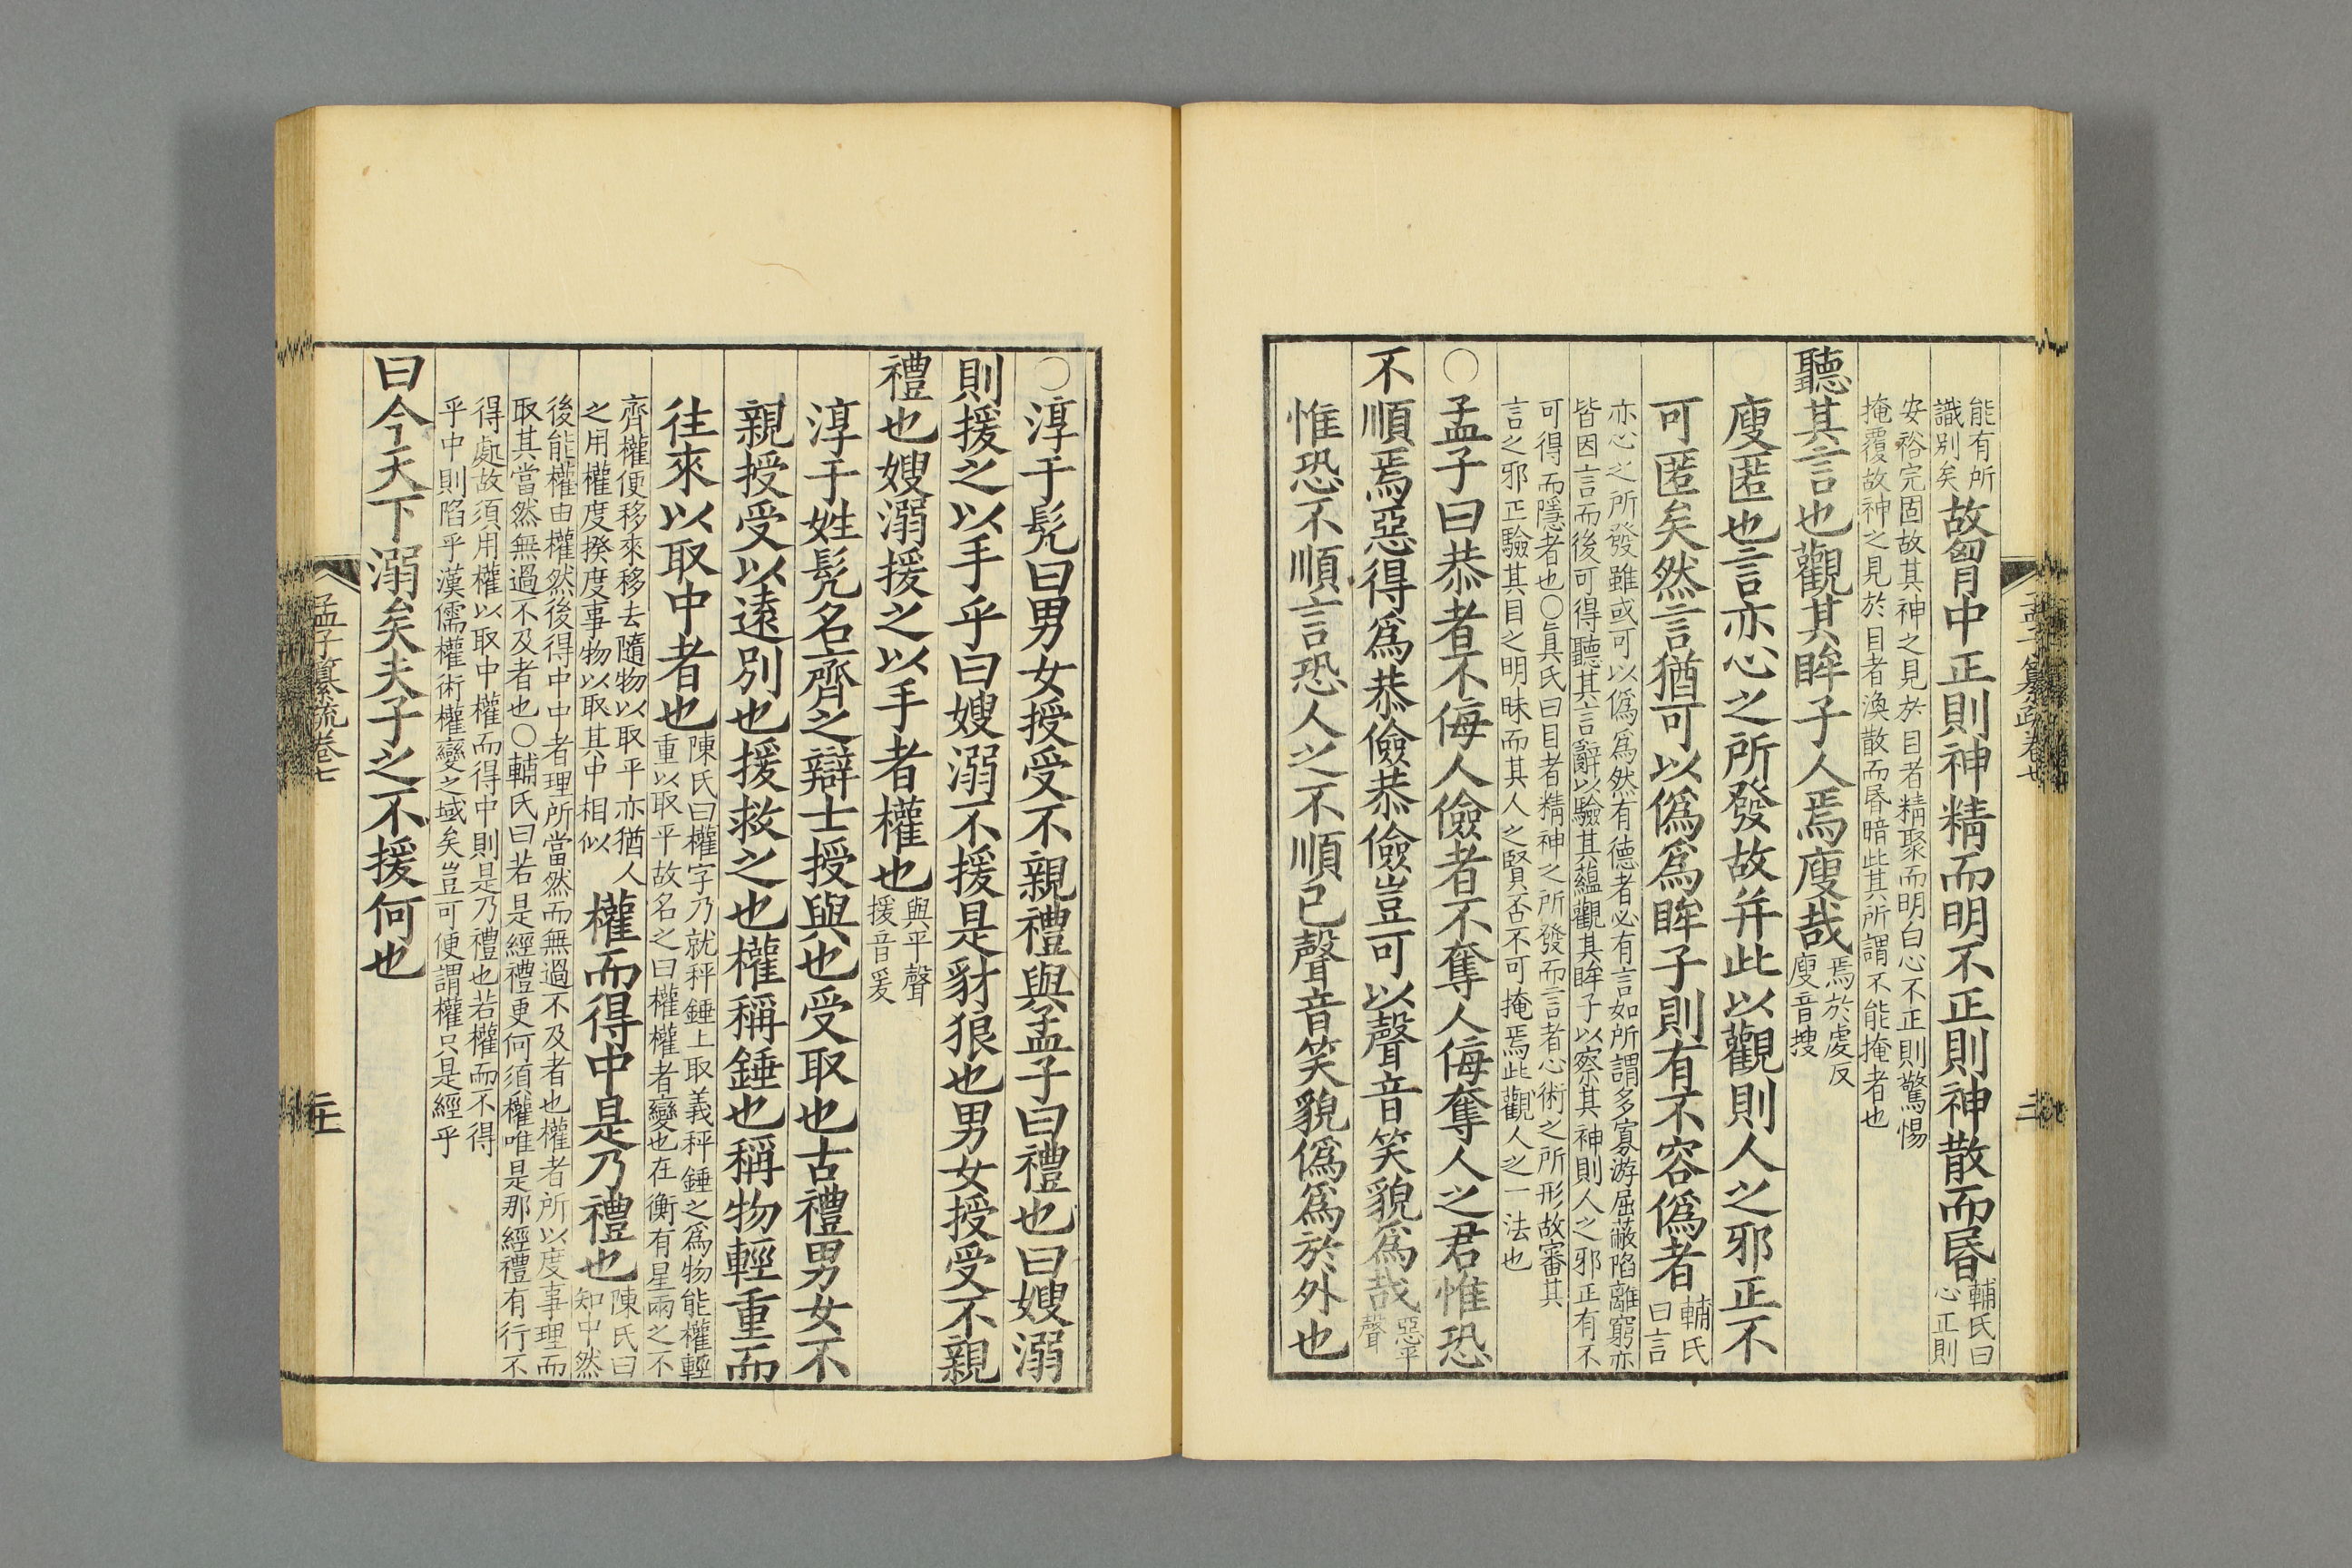 能有所
識別矣
故胷中正則神精而明不正則神散而昬
輔氏曰
心正則
安裕完固故其神之見於目者精聚而明白心不正則驚惕
掩覆故神之見於目者渙散而昬暗此其所謂不能掩者也
聽其言也觀其眸子人焉廋哉
焉於虔反
廋音搜
廋匿也言亦心之所發故并此以觀則人之邪正不
可匿矣然言猶可以偽爲眸子則有不容偽者
輔氏
曰言
亦心之所發雖或可以偽爲然有德者必有言如所謂多寡游屈蔽陷離窮亦
皆因言而後可得聽其言辭以驗其蘊觀其眸子以察其神則人之邪正有不
可得而隱者也〇眞氏曰目者精神之所發而言者心術之所形故審其
言之邪正驗其目之明昧而其人之賢否不可掩焉此觀人之一法也
〇孟子曰恭者不侮人儉者不奪人侮奪人之君惟恐
不順焉惡得爲恭儉恭儉豈可以聲音笑貌爲哉
惡平
聲
惟恐不順言恐人之不順己聲音笑貌偽爲於外也
孟子纂疏卷七
〇淳于髡曰男女授受不親禮與孟子曰禮也曰嫂溺
則援之以手乎曰嫂溺不援是豺狼也男女授受不親
禮也嫂溺援之以手者權也
與平聲
援音爰
淳于姓髡名齊之辯士授與也受取也古禮男女不
親授受以遠別也援救之也權稱錘也稱物輕重而
往來以取中者也
陳氏曰權字乃就秤錘上取義秤錘之爲物能權輕
重以取平故名之曰權權者變也在衡有星兩之不
齊權便移來移去隨物以取平亦猶人
之用權度揆度事物以取其中相似
權而得中是乃禮也
陳氏曰
知中然
後能權由權然後得中中者理所當然而無過不及者也權者所以度事理而
取其當然無過不及者也〇輔氏曰若是經禮更何須權唯是那經禮有行不
得處故須用權以取中權而得中則是乃禮也若權而不得
乎中則陷乎漢儒權術權變之域矣豈可便謂權只是經乎
曰今天下溺矣夫子之不援何也
孟子纂疏卷七